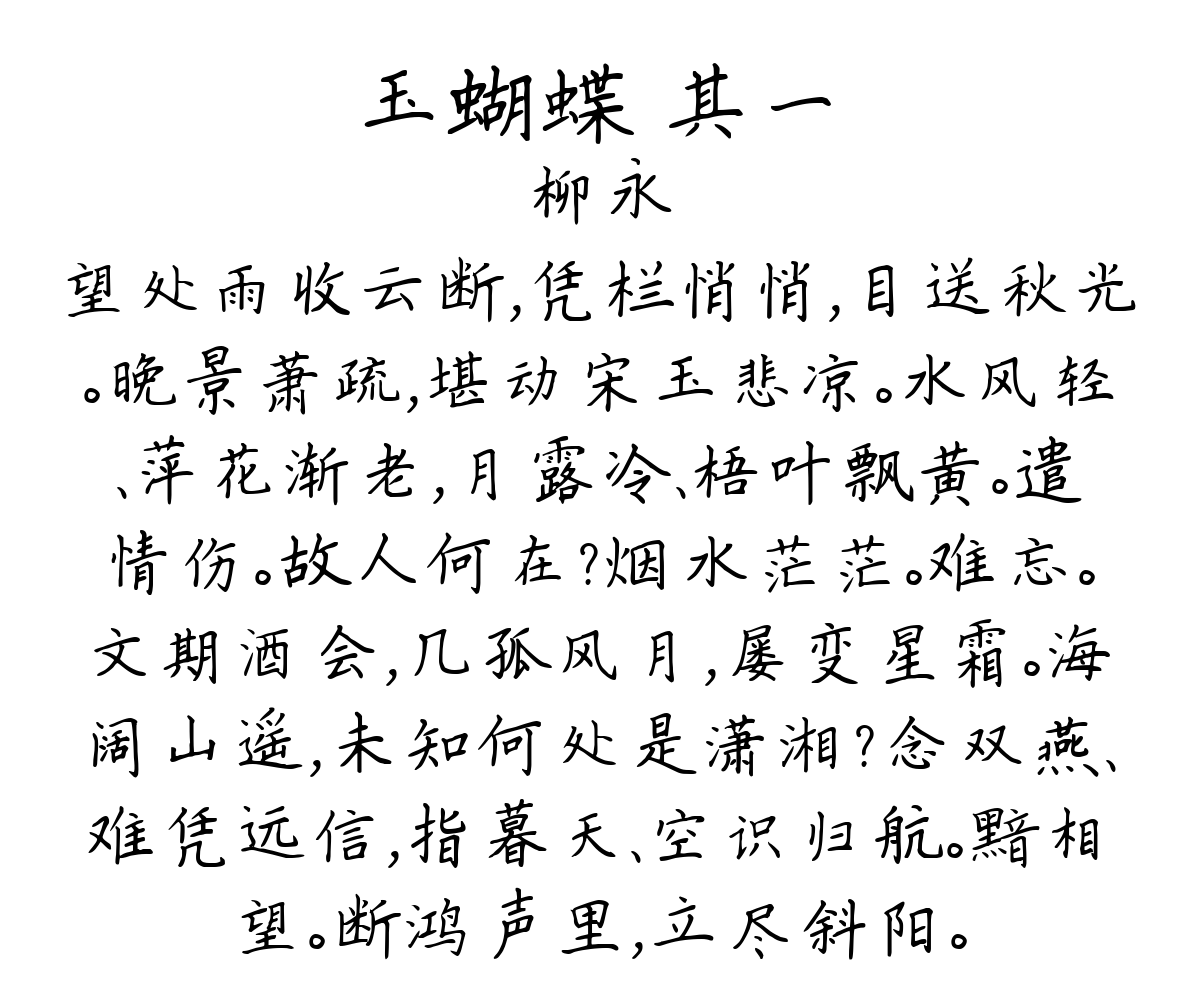 玉蝴蝶 其一
柳永
望处雨收云断,凭栏悄悄,目送秋光
。晚景萧疏,堪动宋玉悲凉。水风轻
、萍花渐老,月露冷、梧叶飘黄。遣
情伤。故人何在?烟水茫茫。难忘。
文期酒会,几孤风月,屡变星霜。海
阔山遥,未知何处是潇湘?念双燕、
难凭远信,指暮天、空识归航。黯相
望。断鸿声里,立尽斜阳。